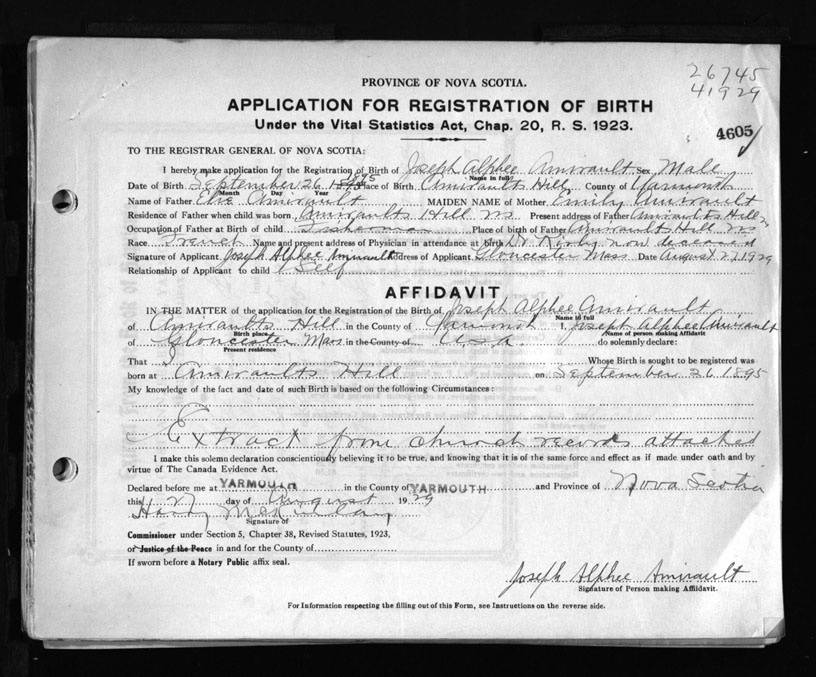 26745
41929
PROVINCE OF NOVA SCOTIA.
APPLICATION FOR REGISTRATION OF BIRTH
Under the Vital Statistics Act, Chap. 20, R. S. 1923.
4605
TO THE REGISTRAR GENERAL OF NOVA SCOTIA:
I hereby make application for the Registration of Birth of Joseph Alphee Amirault Sex Male
Name in full
Date of Birth September 26 1895 Place of Birth Amiraults Hill County of Yarmouth
Month Day Year
Name of Father Elie Amirault MAIDEN NAME of Mother Emily Amirault
Residence of Father when child was born Amiraults Hill NS Present address of Father Amiraults Hill
Occupation of Father at Birth of child Fisherman Place of birth of Father Amiraults Hill NS
Race French Name and present address of Physician in attendance at birth Dr Kirby now deceased
Signature of Applicant Joseph Alphee Amirault Address of Applicant Gloucester Mass Date August 27, 1929
Relationship of Applicant to child Self
AFFIDAVIT
IN THE MATTER of the application for the Registration of the Birth of Joseph Alphee Amirault
Name in full
of Amiraults Hill in the County of Yarmouth I, Joseph Alphee Amirault
Birth place Name of person making Affidavit
of Gloucester Mass in the County of U.S.A. do solemnly declare:
Present residence
That I Whose Birth is sought to be registered was
born at Amiraults Hill on September 26 1895
My knowledge of the fact and date of such Birth is based on the following Circumstances:
Extract from church records attached
I make this solemn declaration conscientiously believing it to be true, and knowing that it is of the same force and effect as if made under oath and by
virtue of The Canada Evidence Act.
Declared before me at YARMOUTH in the County of YARMOUTH and Province of Nova Scotia
this 27 day of August 1929
Harry
Signature of
Commissioner under Section 5, Chapter 38, Revised Statutes, 1923,
or Justice of the Peace in and for the County of
If sworn before a Notary Public affix seal.
Joseph Alphee Amirault
Signature of Person making Affidavit.
For Information respecting the filling out of this Form, see Instructions on the reverse side.